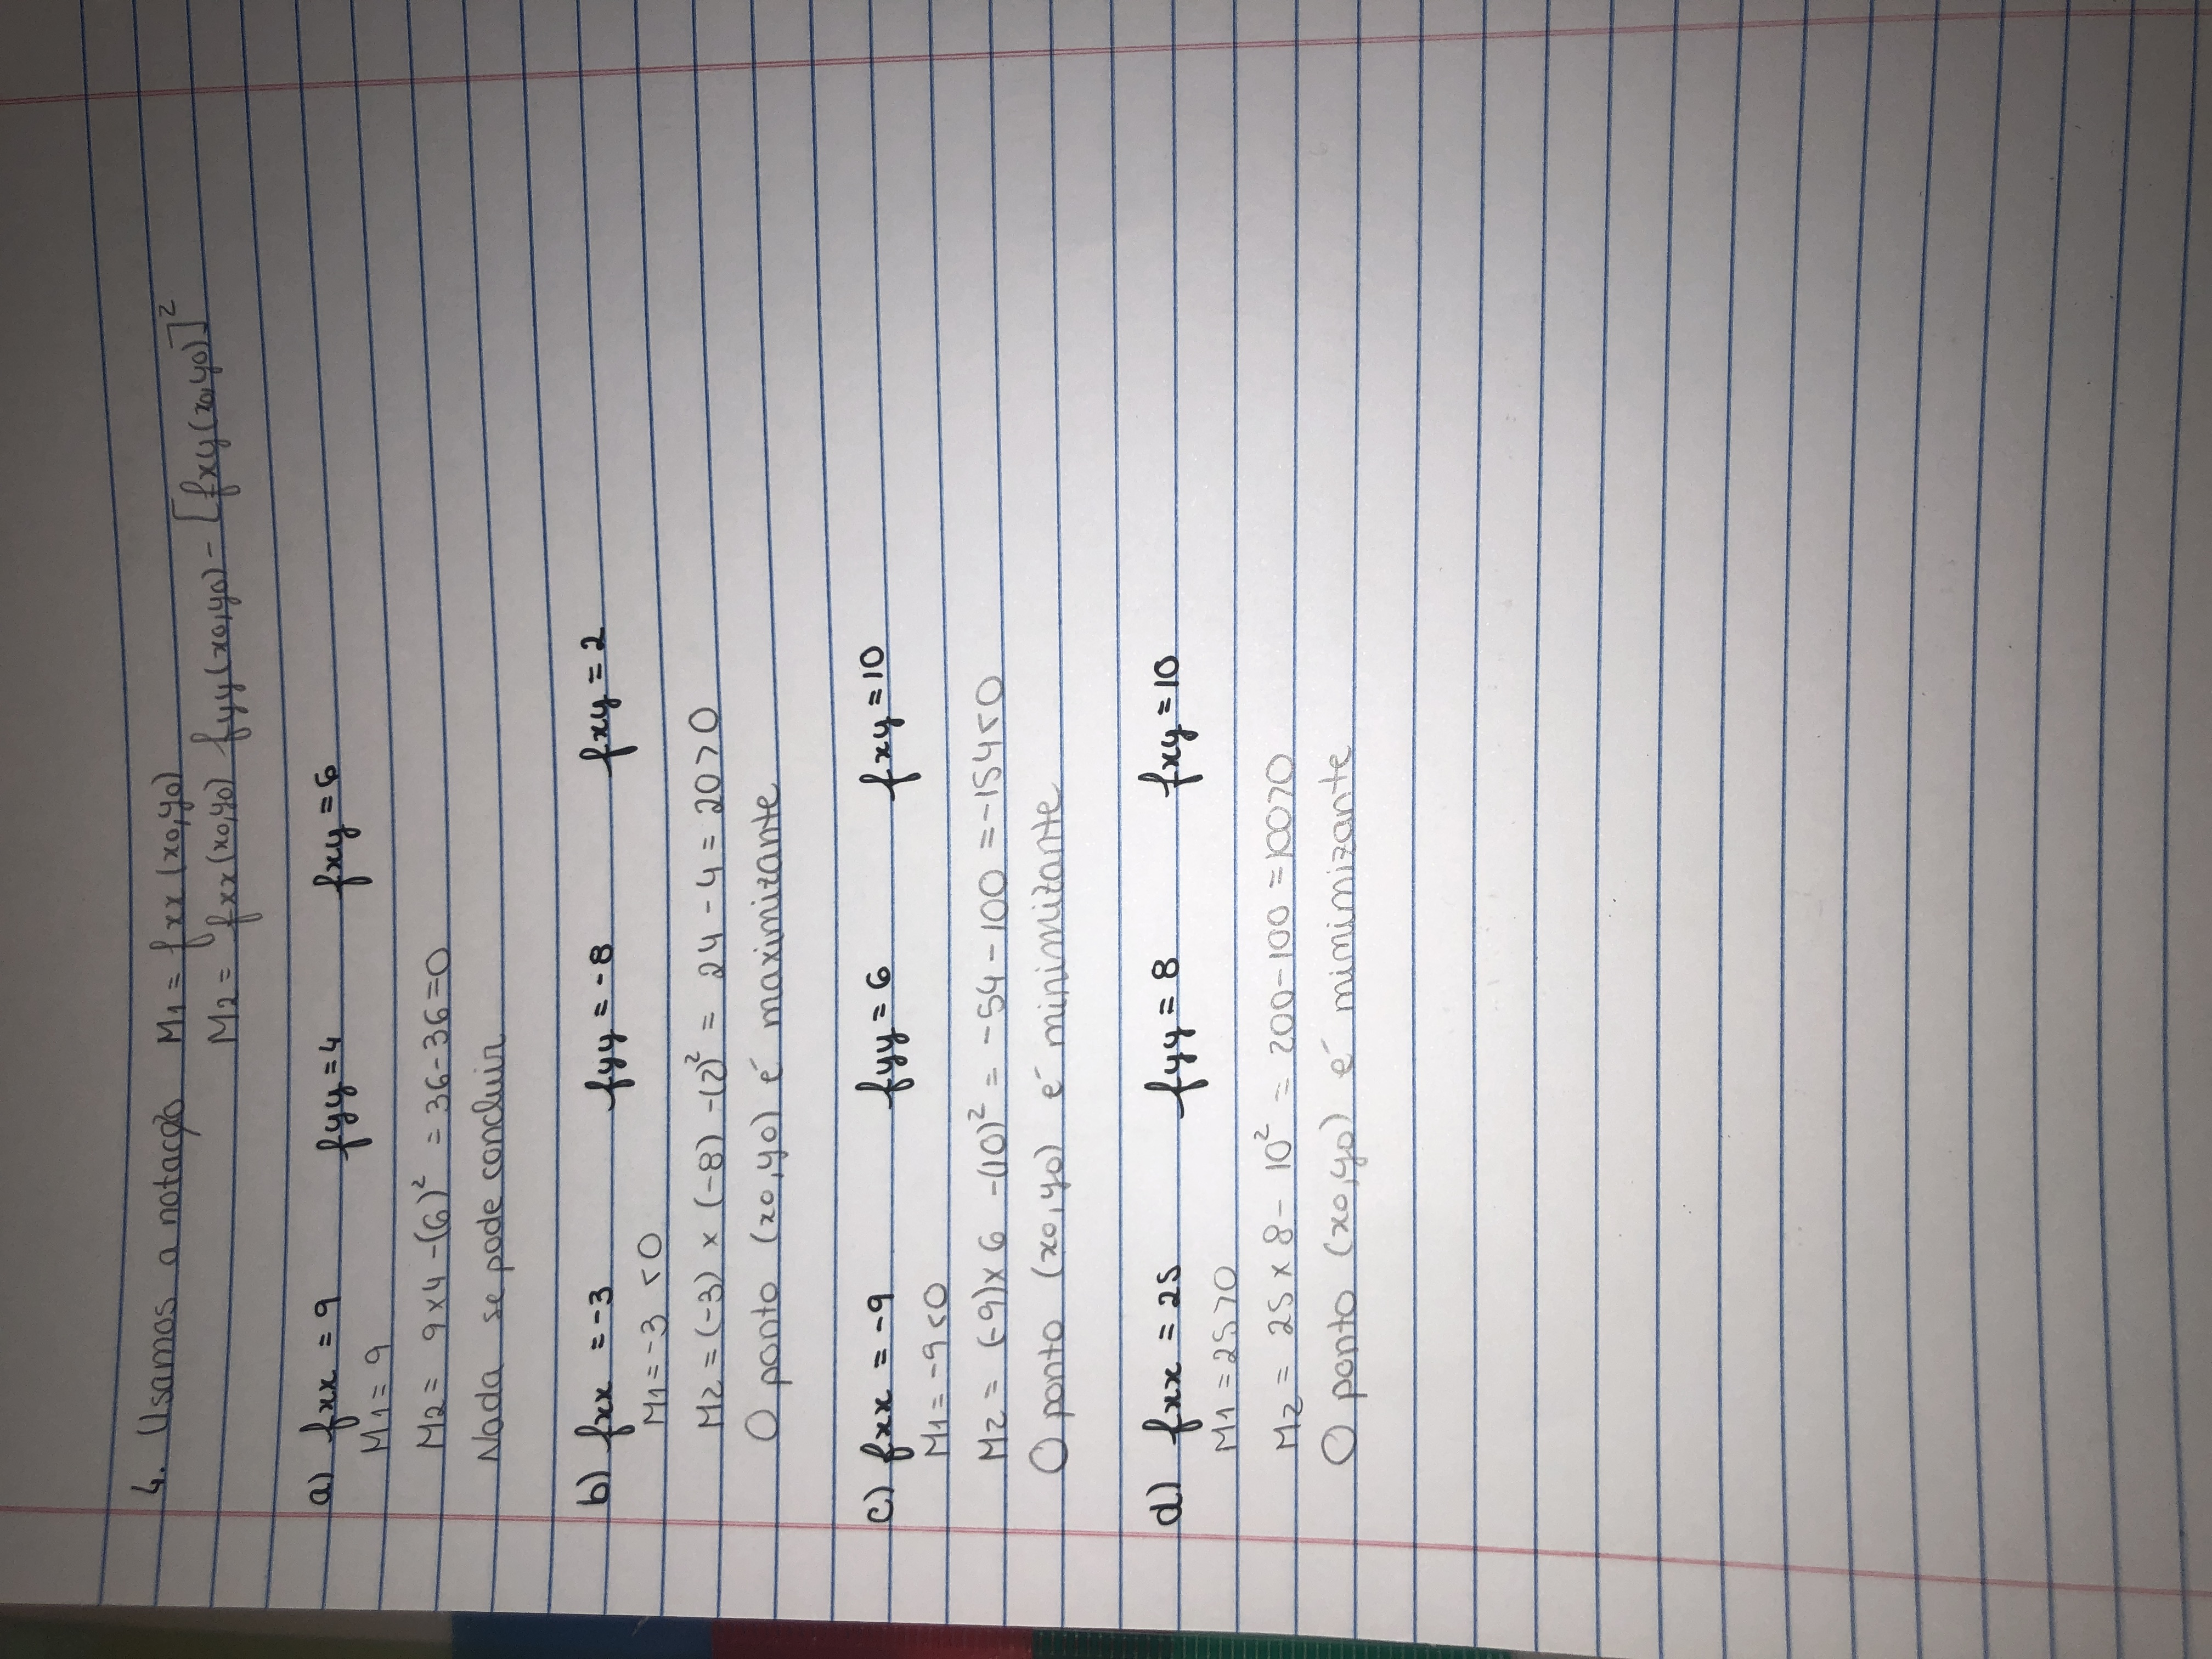 4. Usamos a notação M1 = fxx (x0,y0)
M2 = fxx(x0,y0) fyy(x0,y0) - [fxy(x0,y0)]²
a) fxx = 9 fyy = 4 fxy = 6
M1 = 9
M2 = 9x4 -(6)² = 36-36=0
Nada se pode concluir
b) fxx = -3 fyy = -8 fxy = 2
M1 = -3 < 0
M2 = (-3) x (-8) -(2)² = 24 - 4 = 20 > 0
O ponto (x0,y0) é maximizante
c) fxx = -9 fyy = 6 fxy = 10
M1 = -9 < 0
M2 = (-9)x 6 -(10)² = -54 - 100 = -154 < 0
O ponto (x0,y0) é minimizante
d) fxx = 25 fyy = 8 fxy = 10
M1 = 25 > 0
M2 = 25 x 8 - 10² = 200-100 = 100 > 0
O ponto (x0,y0) é minimizante